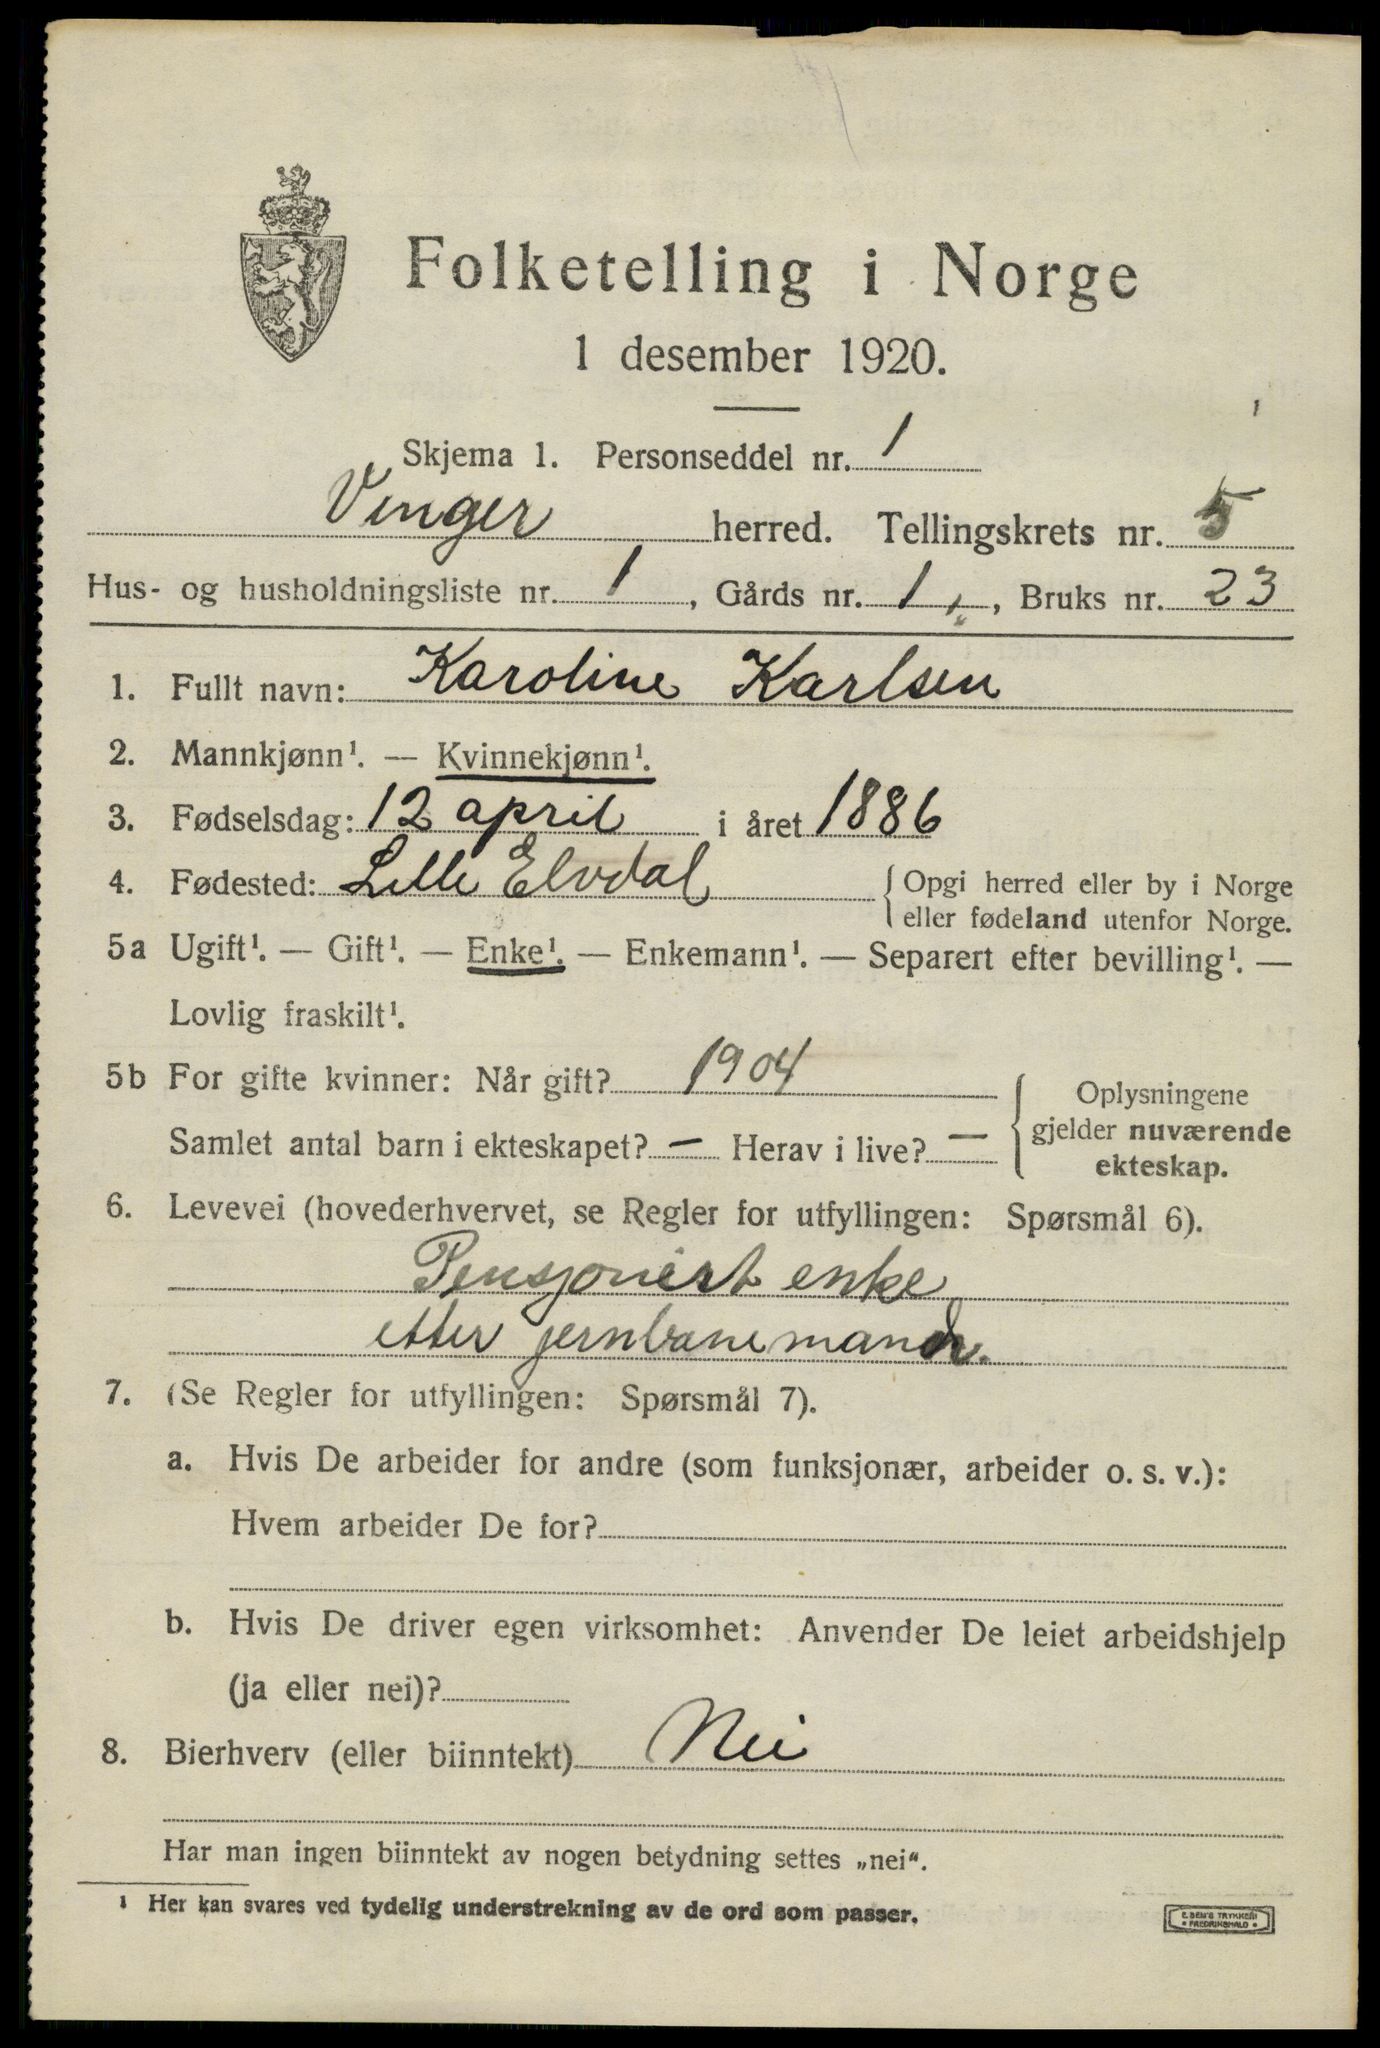 Folketelling i Norge
1 desember 1920.
Skjema 1. Personseddel nr. 1
Vinger herred. Tellingskrets nr. 5
Hus- og husholdningsliste nr. 1, Gårds nr. 1, Bruks nr. 23
1. Fullt navn: Karoline Karlsen
2. Mannkjønn¹. — Kvinnekjønn¹.
3. Fødselsdag: 12 april i året 1886
4. Fødested: Lille Elvdal { Opgi herred eller by i Norge
eller fødeland utenfor Norge.
5a Ugift¹. — Gift¹. — Enke¹. — Enkemann¹. — Separert efter bevilling¹. —
Lovlig fraskilt¹.
5b For gifte kvinner: Når gift? 1904
Samlet antal barn i ekteskapet? — Herav i live? —
{ Oplysningene
gjelder nuværende
ekteskap.
6. Levevei (hovederhvervet, se Regler for utfyllingen: Spørsmål 6).
Pensjonert enke
etter jernbanemand.
7. (Se Regler for utfyllingen: Spørsmål 7).
a. Hvis De arbeider for andre (som funksjonær, arbeider o. s. v.):
Hvem arbeider De for?
b. Hvis De driver egen virksomhet: Anvender De leiet arbeidshjelp
(ja eller nei)?
8. Bierhverv (eller biinntekt) Nei
Har man ingen biinntekt av nogen betydning settes „nei“.
¹ Her kan svares ved tydelig understrekning av de ord som passer.
E. SEM'S TRYKKERI
• FREDRIKSHALD •